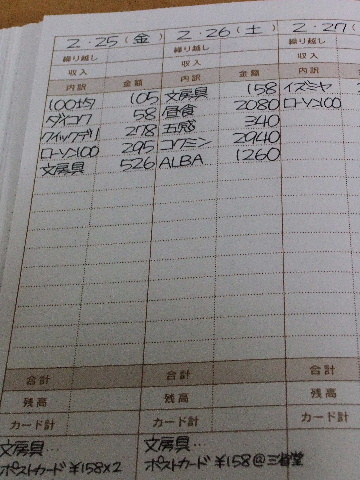 2・25(金) 2・26(土) 2・27(
繰り越し 繰り越し 繰り越し
収入 収入 収入
内訳 金額 内訳 金額 内訳
100均 105 文房具 158 イズミヤ
ダイコク 58 昼食 2080 ローソン100
クイックデリ 278 五感 340
ローソン100 295 コクミン 2940
文房具 526 ALBA 1260
合計 合計 合計
残高 残高 残高
カード計 カード計 カード計
文房具… 文房具…
ポストカード ¥158×2 ポストカード ¥158@三省堂